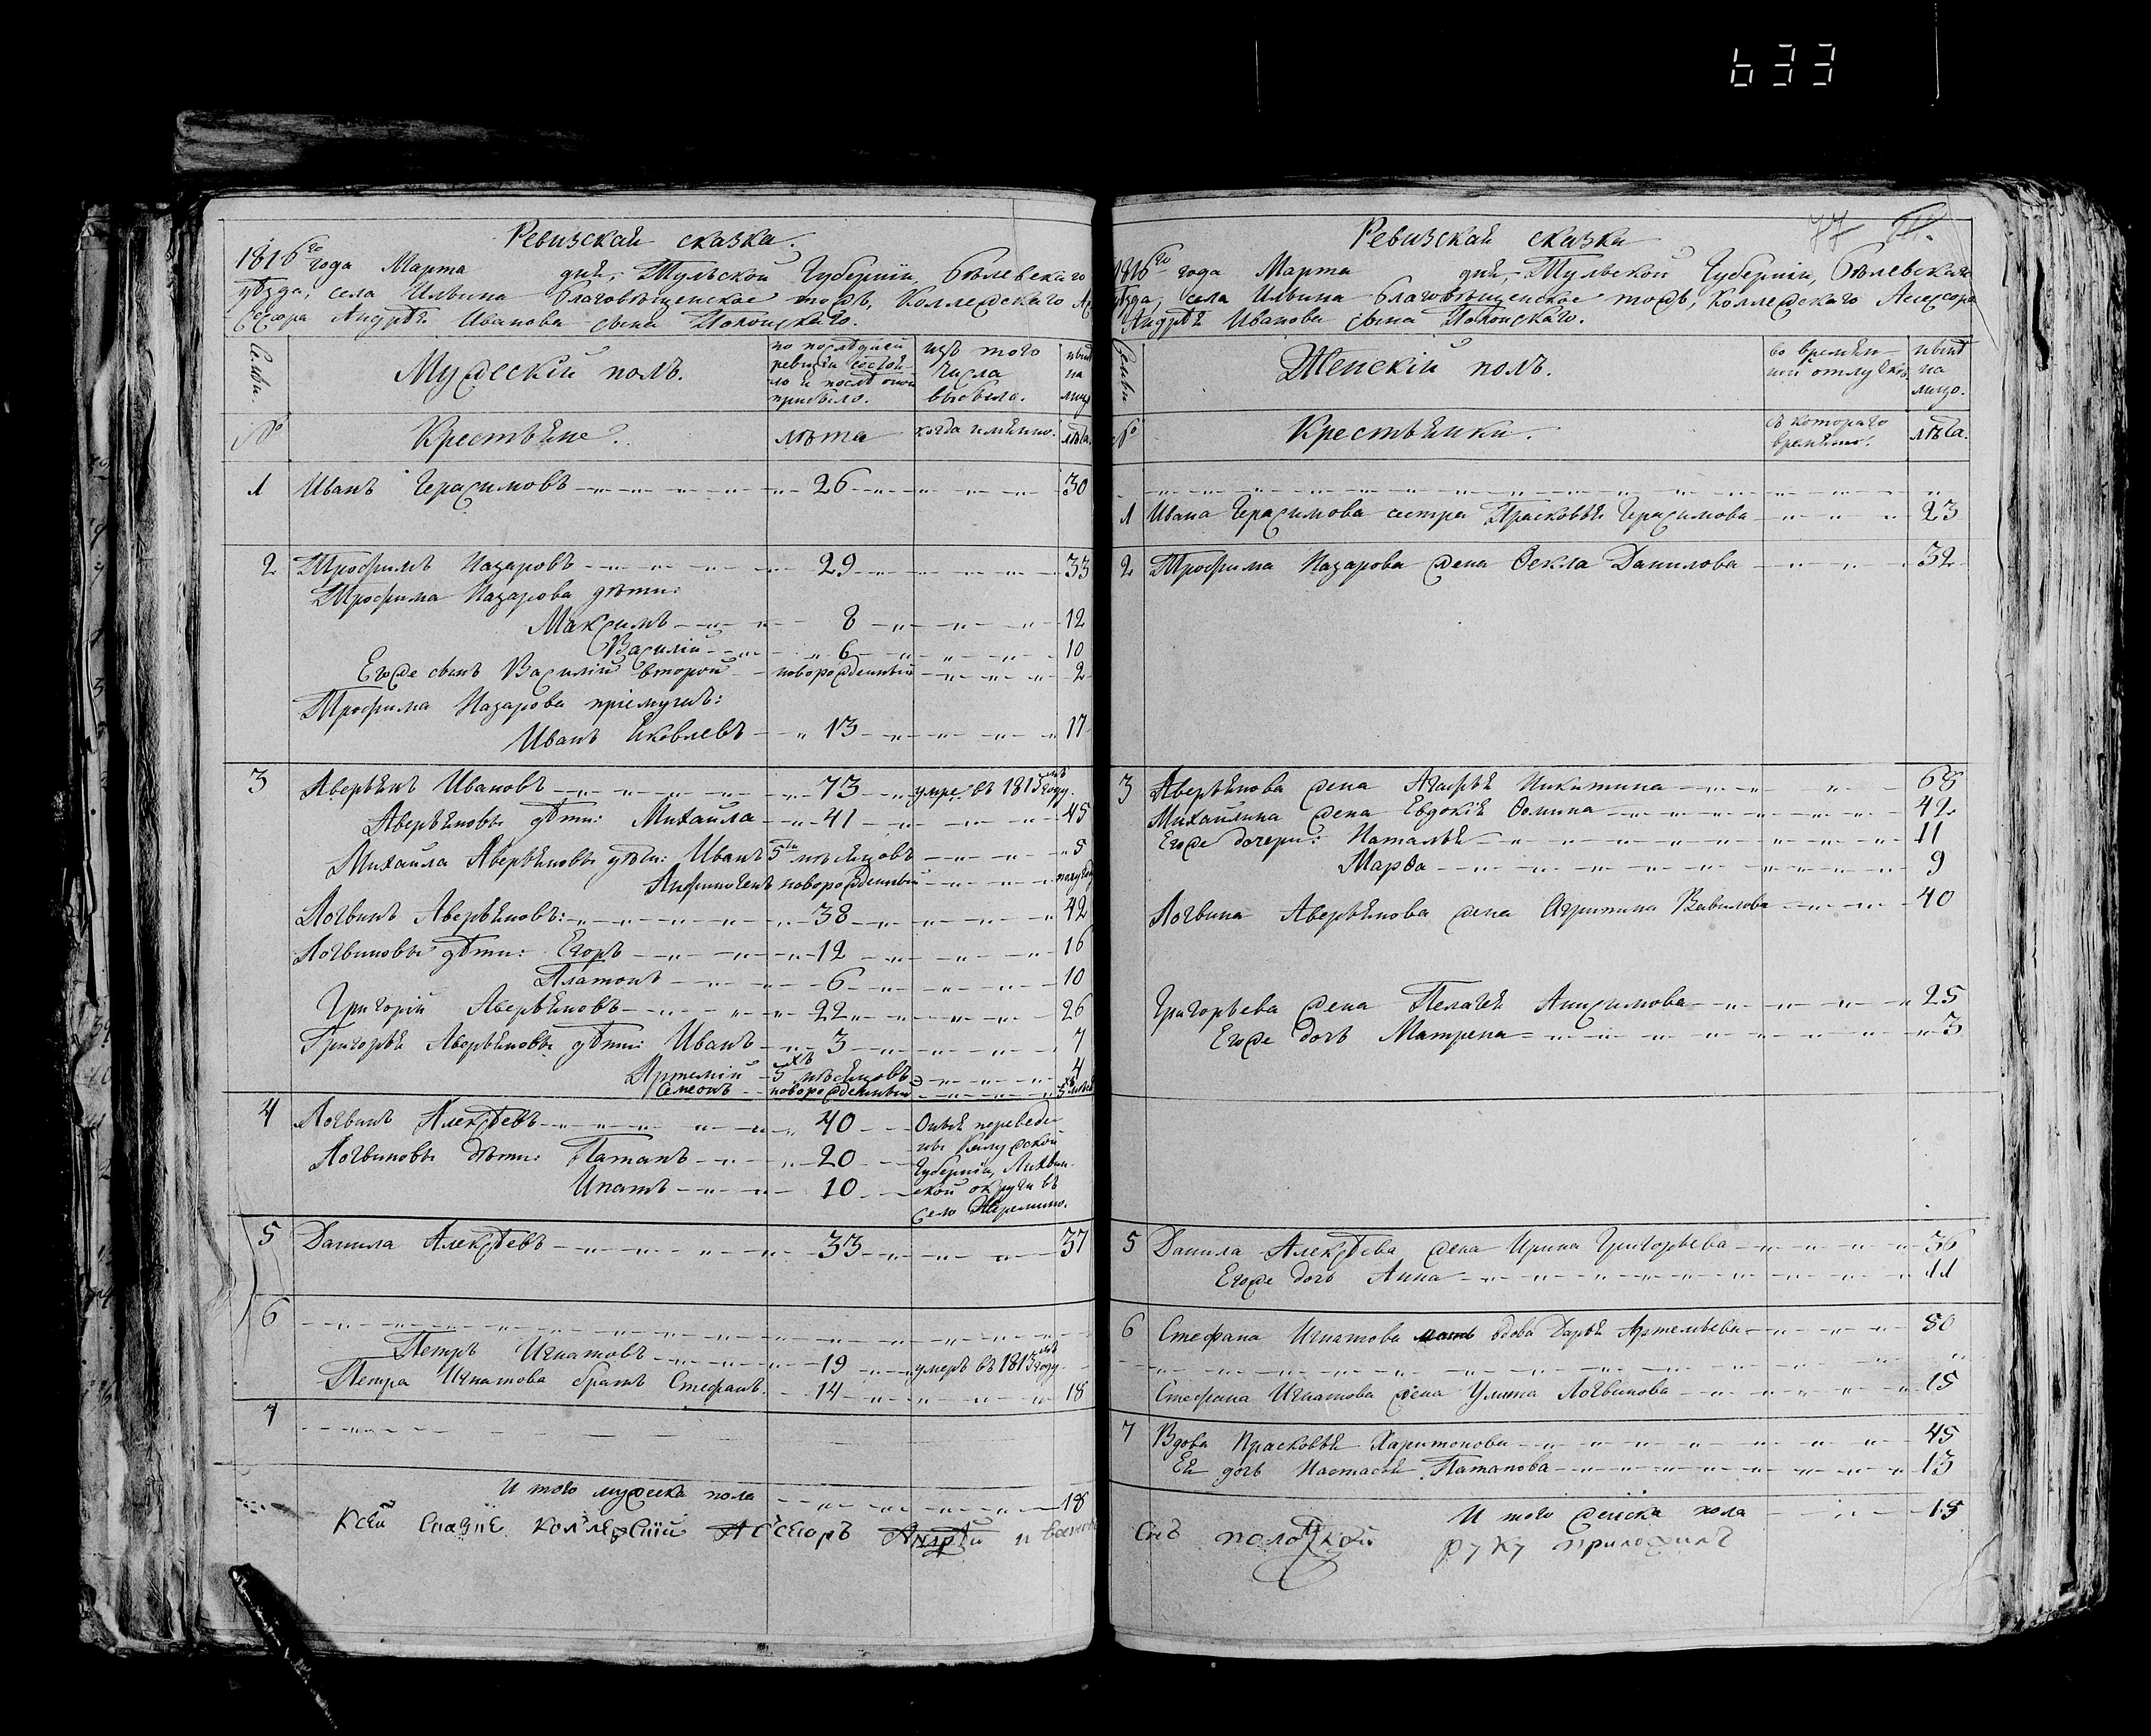 633
Ревизская сказка.
1816го года Марта дня, Тульской Губернии, Белевскаго
уѣзда, села Ильина Благовѣщенское тожъ, Коллежскаго Ас
сесора Андрѣя Иванова сына
Семьи.
Мужескій полъ.
по послѣдней
ревизіи состоя-
ло и послѣ оной
прибыло.
изъ того
числа
выбыло.
нынѣ
на
лицо
№
Крестьяне.
лѣта
когда имянно.
лѣта.
1 Иванъ Герасимовъ 26 30
2 Трофимъ Назаровъ 29 33
Трофима Назарова дѣти:
Максимъ 8 12
Василій 6 10
Егоже сынъ Василій второй новорожденный 2
Трофима Назарова пріемышъ:
Иванъ Яковлевъ 13 17
3 Аверьянъ Ивановъ 73 умре въ 1813мъ году.
Аверьяновы дѣти: Михайла 41 45
Михайла Аверьяновы дѣти: Иванъ 5ти мѣсяцовъ 5
новорожденный полугода
Логвинъ Аверьяновъ: 38 42
Логвиновы дѣти: Егоръ 12 16
Платонъ 6 10
Григорій Аверьяновъ 22 26
Григорья Аверьяновы дѣти: Иванъ 3 7
Артемій 5ти мѣсяцовъ 4
Семенъ новорожденный
4 Логвинъ Алексѣевъ 40
Логвиновы дѣти: Патапъ 20
Ипатъ 10
Оныя переведе-
ны Калужской
Губерніи, Лихвин-
ской округи въ
село
5 Данила Алексѣевъ 33 37
6
Петръ Игнатовъ 19 умеръ въ 1813мъ году
Петра Игнатова братъ Стефанъ. 14 18
7
И того мужеска пола 18
Ксей сказке коллежский Ассесоръ Андрей Иванов
77
Ревизская сказка
1816го года Марта дня, Тульской Губерніи, Бѣлевскаго
уѣзда, села Ильина Благовѣщенское тожъ, Коллежскаго Асессора
Андрѣя Иванова сына
Семьи
Женскій полъ.
во времян-
ной отлучкѣ
нынѣ
на
лицо.
№
Крестьянки.
съ котораго
времяни.
лѣта.
1 Ивана Герасимова сестра Прасковья Герасимова 23
2 Трофима Назарова жена Фекла Данилова 32
3 Аверьянова жена Агафья Никитина 68
Михайлина жена Евдокія Фомина 42
Егоже дочери: Наталья 11
Марѳа 9
Логвина Аверьянова жена Агрипина Вавилова 40
Григорьева жена Пелагея Анисимова 25
Егоже дочь Матрена 3
5 Данила Алексѣева жена Ирина Григорьева 36
Егоже дочь Анна 11
6 Стефана Игнатова мать вдова Дарья Артемьева 50
Стефана Игнатова жена Улита Логвинова 15
7 Вдова Прасковья Харитонова 45
Ея дочь Настасья Патапова 13
И того женска пола 15
Снъ руку приложилъ